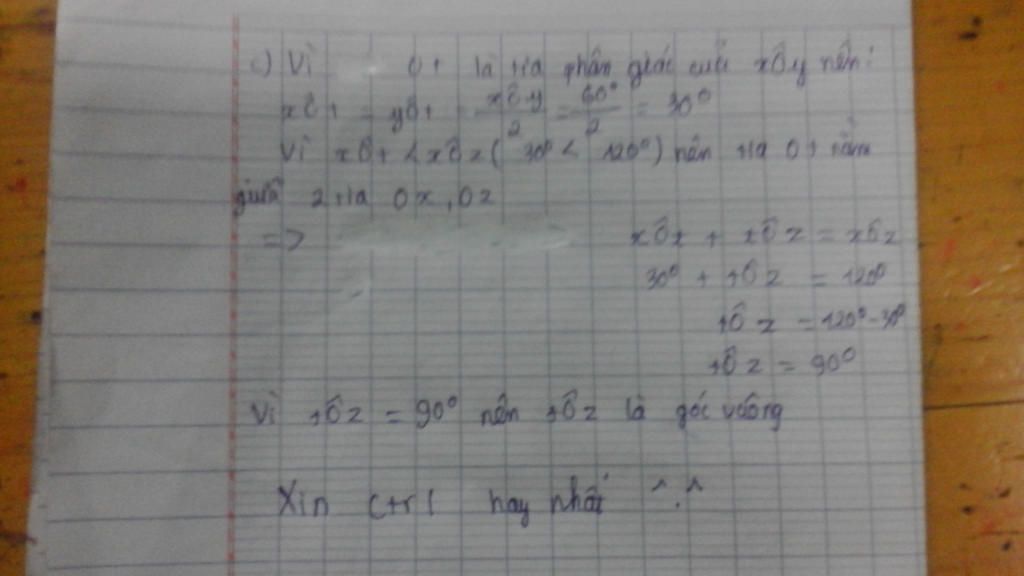 c) Vì Ot là tia phân giác của xÔy nên:
xÔt = yÔt = xÔy/2 = 60°/2 = 30°
Vì xÔt < xÔz ( 30° < 120° ) nên tia Ot nằm
giữa 2 tia Ox, Oz
=> xÔt + tÔz = xÔz
30° + tÔz = 120°
tÔz = 120° - 30°
tÔz = 90°
Vì tÔz = 90° nên tÔz là góc vuông
Xin ctrl hay nhất ^.^